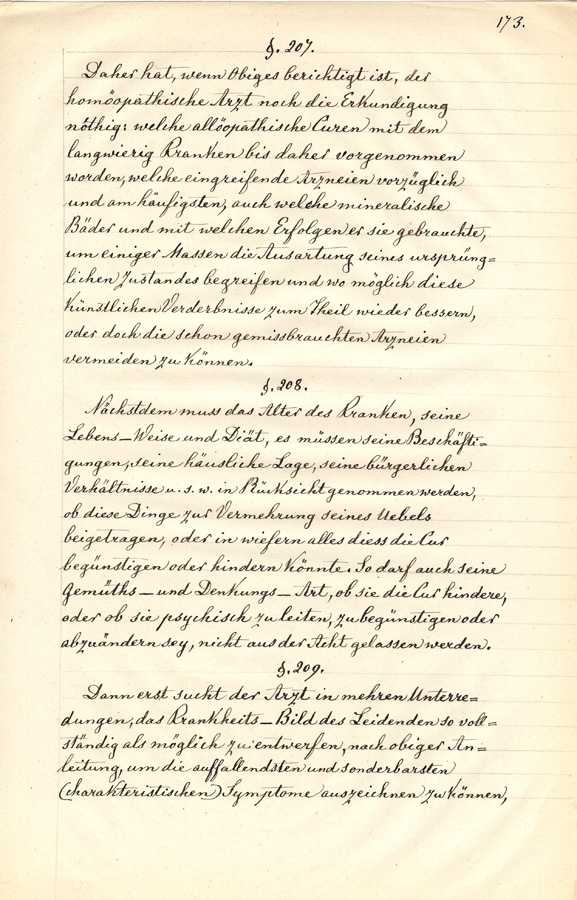 173.
§. 207.
Daher hat, wenn Obiges berichtigt ist, der
homöopathische Arzt noch die Erkundigung
nöthig: welche allöopathische Curen mit dem
langwierig Kranken bis daher vorgenommen
worden, welche eingreifende Arzneien vorzüglich
und am häufigsten, auch welche mineralische
Bäder und mit welchen Erfolgen er sie gebrauchte,
um einiger Massen die Ausartung seines ursprüng=
lichen Zustandes begreifen und wo möglich diese
künstlichen Verderbnisse zum Theil wieder bessern,
oder doch die schon gemissbrauchten Arzneien
vermeiden zu können.
§. 208.
Nächstdem muss das Alter des Kranken, seine
Lebens-Weise und Diät, es müssen seine Beschäfti=
gungen, seine häusliche Lage, seine bürgerlichen
Verhältnisse u. s. w. in Rücksicht genommen werden,
ob diese Dinge zur Vermehrung seines Uebels
beigetragen, oder in wiefern alles diess die Cur
begünstigen oder hindern könnte. So darf auch seine
Gemüths- und Denkungs-Art, ob sie die Cur hindere,
oder ob sie psychisch zu leiten, zu begünstigen oder
abzuändern sey, nicht aus der Acht gelassen werden.
§. 209.
Dann erst sucht der Arzt in mehren Unterre=
dungen, das Krankheits-Bild des Leidenden so voll=
ständig als möglich zu entwerfen, nach obiger An=
leitung, um die auffallendsten und sonderbarsten
(charakteristischen) Symptome auszeichnen zu können,